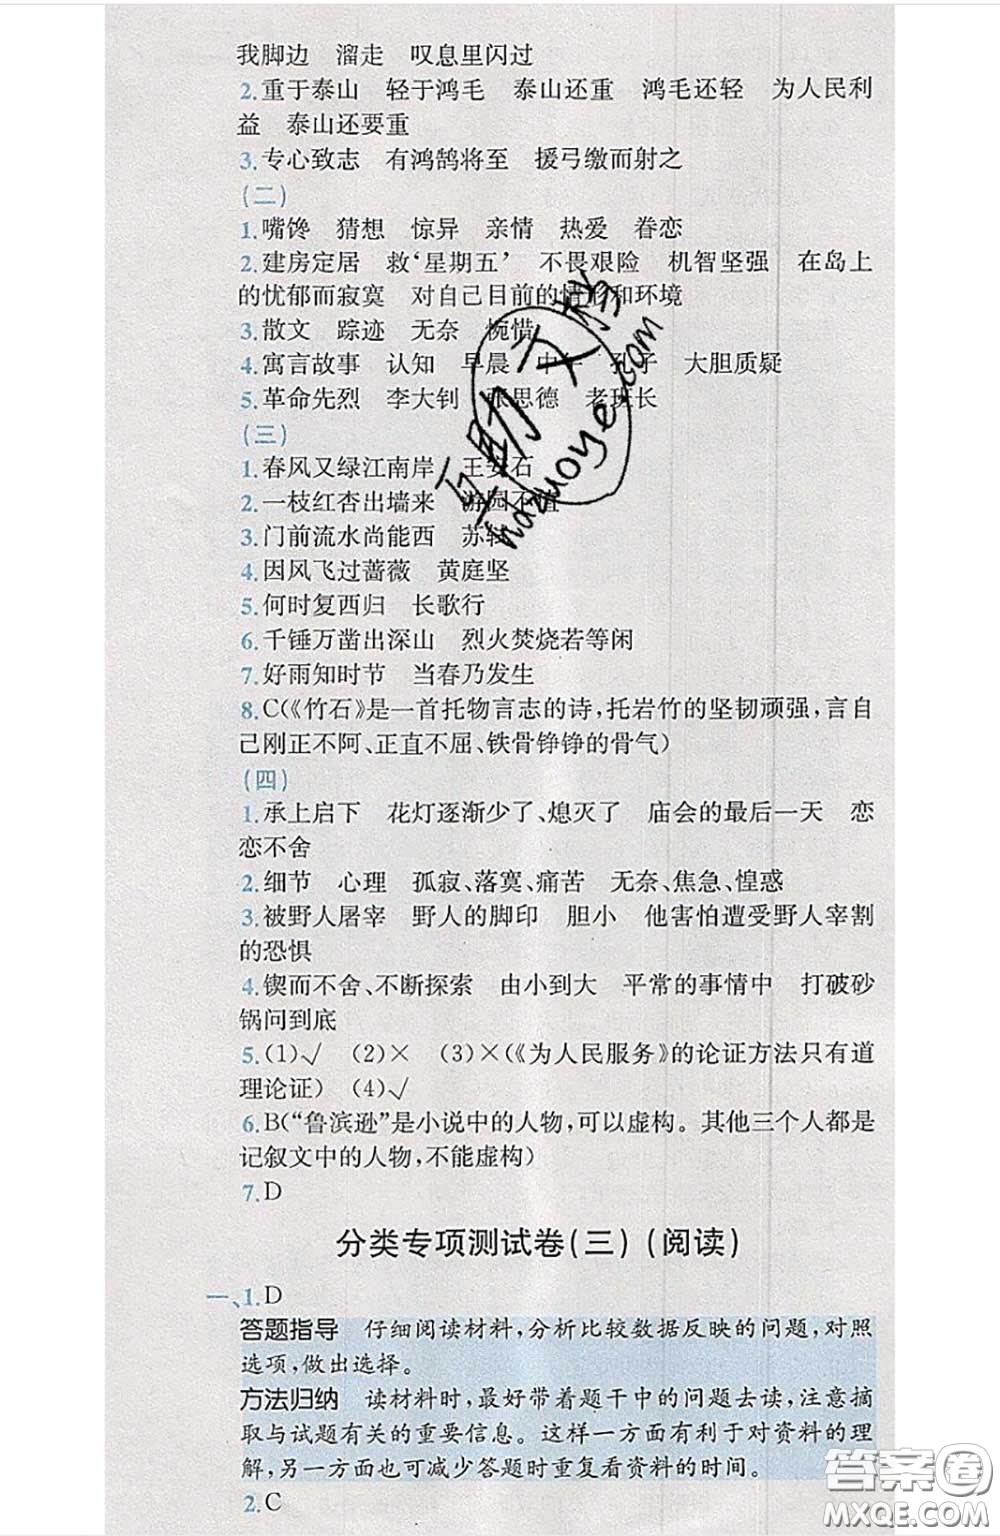 我脚边　溜走　叹息里闪过
2.重于泰山　轻于鸿毛　泰山还重　鸿毛还轻　为人民利
益　泰山还要重
3.专心致志　有鸿鹄将至　援弓缴而射之
(二)
1.嘴馋　猜想　惊异　亲情　热爱　眷恋
2.建房定居　救‘星期五’　不畏艰险　机智坚强　在岛上
的忧郁而寂寞　对自己目前的情形和环境
3.散文　踪迹　无奈　惋惜
4.寓言故事　认知　早晨　中午　孔子　大胆质疑
5.革命先烈　李大钊　张思德　老班长
(三)
1.春风又绿江南岸　王安石
2.一枝红杏出墙来　游园不值
3.门前流水尚能西　苏轼
4.因风飞过蔷薇　黄庭坚
5.何时复西归　长歌行
6.千锤万凿出深山　烈火焚烧若等闲
7.好雨知时节　当春乃发生
8.C(《竹石》是一首托物言志的诗,托岩竹的坚韧顽强,言自
己刚正不阿、正直不屈、铁骨铮铮的骨气)
(四)
1.承上启下　花灯逐渐少了、熄灭了　庙会的最后一天　恋
恋不舍
2.细节　心理　孤寂、落寞、痛苦　无奈、焦急、惶惑
3.被野人屠宰　野人的脚印　胆小　他害怕遭受野人宰割
的恐惧
4.锲而不舍、不断探索　由小到大　平常的事情中　打破砂
锅问到底
5.(1)√　(2)×　(3)×(《为人民服务》的论证方法只有道
理论证)　(4)√
6.B(“鲁滨逊”是小说中的人物,可以虚构。其他三个人都是
记叙文中的人物,不能虚构)
7.D
分类专项测试卷(三)(阅读)
一、1.D
答题指导　仔细阅读材料,分析比较数据反映的问题,对照
选项,做出选择。
方法归纳　读材料时,最好带着题干中的问题去读,注意摘
取与试题有关的重要信息。这样一方面有利于对资料的理
解,另一方面也可减少答题时重复看资料的时间。
2.C
答案圈
MXQE.COM